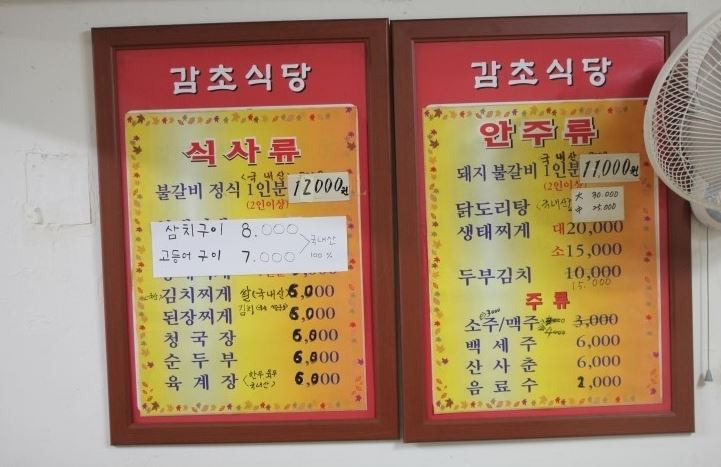 감초식당
식사류
국내산
불갈비 정식 1인분 12000원
(2인이상)
삼치구이 8.000
고등어 구이 7.000
국내산
100%
김치찌개 쌀(국내산) 6,000
된장찌개 김치 6,000
청국장 6,000
순두부 6,000
육계장 6,000
국내산
감초식당
안주류
국내산
돼지 불갈비 1인분 11,000원
(2인이상)
닭도리탕 (국내산) 大 30.000
中 25.000
생태찌게 대 20,000
소 15,000
두부김치 10,000
15.000
주류
소주/맥주 3,000
3000
4000
백세주 6,000
산사춘 6,000
음료수 2,000